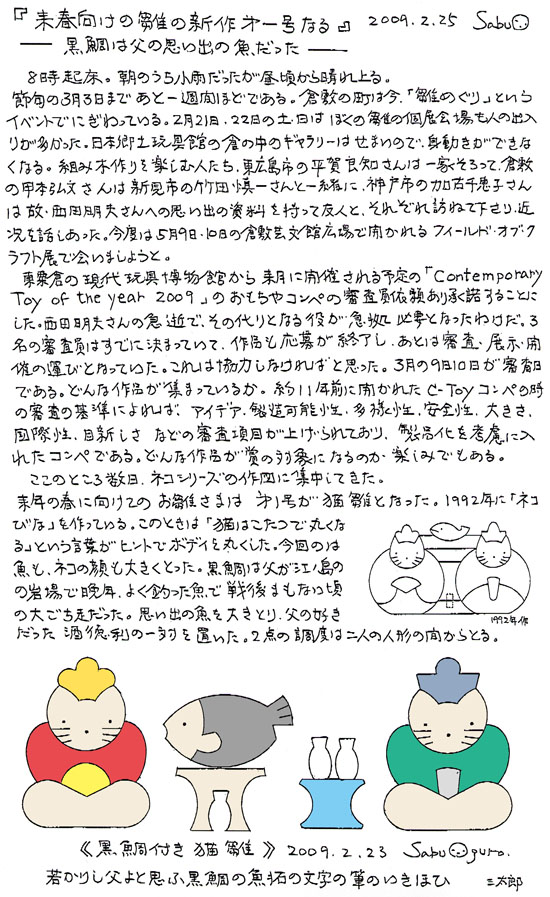 『来春向けの雛の新作オ一号なる』 2009.2.25 Sabu
── 黒鯛は父の思い出の魚だった ──
8時起床。朝のうち小雨だったが昼頃から晴れ上る。
節句の3月3日まであと一週間ほどである。倉敷の町は今、「雛めぐり」という
イベントでにぎわっている。2月21日、22日の土・日はぼくの雛の個展会場も人の出入
りが多かった。日本郷土玩具館の倉の中のギャラリーはせまいので、身動きができな
くなる。組み木作りを楽しむ人たち、東広島市の平賀良知さんは一家そろって、倉敷
の甲本弘文さんは新見市の竹田慎一さんと一緒に、神戸市の加古千恵子さん
は故・西田明夫さんへの思い出の資料を持って友人と、それぞれ訪ねて下さり、近
況を話しあった。今度は5月9日・10日の倉敷芸文館広場で開かれるフィールド・オブ・ク
ラフト展で会いましょうと。
東粟倉の現代玩具博物館から来月に開催される予定の「Contemporary
Toy of the year 2009」のおもちゃコンペの審査員依頼あり承諾することに
した。西田明夫さんの急逝で、その代りとなる役が急拠必要となったわけだ。3
名の審査員はすでに決まっていて、作品も応募が終了し、あとは審査・展示・開
催の運びとなっていた。これは協力しなければと思った。3月の9日10日が審査日
である。どんな作品が集まっているか。約11年前に開かれたC-Toyコンペの時
の審査の基準によれば、アイデア・製造可能性・多様性・安全性・大きさ、
国際性、目新しさ などの審査項目が上げられており、製品化を考慮に入
れたコンペである。どんな作品が賞の対象になるのか楽しみでもある。
ここのところ数日、ネコシリーズの作図に集中してきた。
来年の春に向けてのお雛さまはオ1号が猫雛となった。1992年に「ネコ
びな」を作っている。このときは「猫はこたつで丸くな
る」という言葉がヒントでボディを丸くした。今回のは
魚も、ネコの顔も大きくとった。黒鯛は父が江ノ島の
の岩場で晩年、よく釣った魚で戦後まもない頃
の大ごち走だった。思い出の魚を大きとり、父の好き
だった酒徳利の一対を置いた。2点の調度は二人の人形の間からとる。
1992年作
《黒鯛付き猫雛》 2009.2.23 Sabu Oguro.
若かりし父よと思ふ黒鯛の魚拓の文字の筆のいきほひ 三太郎